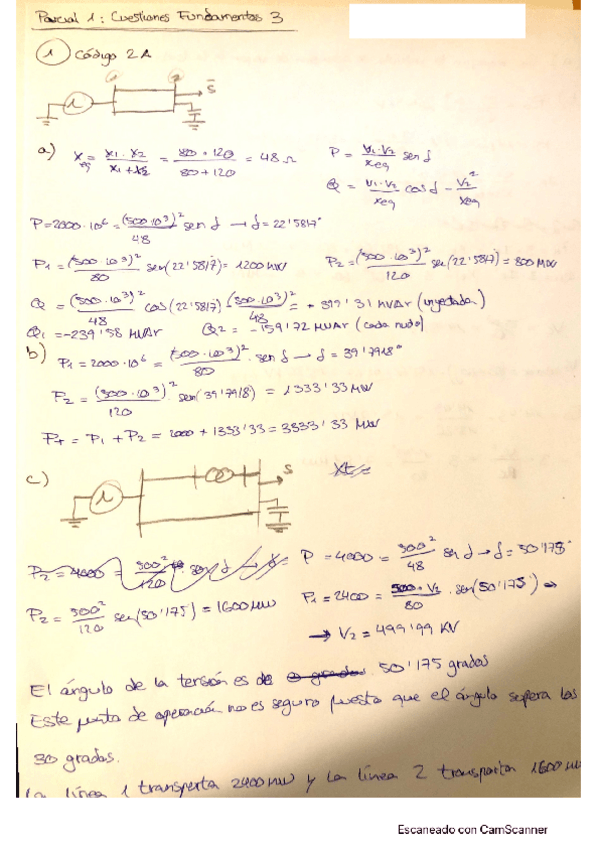 Parcial 1: Cuestiones Fundamentos 3
1 Código 2A
1 2
S
a) Xeq = X1·X2 / X1+X2 = 80·120 / 80+120 = 48 Ω
P = V1·V2 / Xeq sen δ
Q = V1·V2 / Xeq cos δ - V2² / Xeq
P=2000·10⁶ = (500·10³)² / 48 sen δ → δ = 22'5817°
P1 = (500·10³)² / 80 sen(22'5817) = 1200 MW P2 = (500·10³)² / 120 sen(22'5817) = 800 MW
Q = (500·10³)² / 48 cos(22'5817) - (500·10³)² / 48 = + 399'31 MVAr (inyectada)
Q1 = -239'58 MVAr Q2 = -159'72 MVAr (cada nudo)
b) P1 = 2000·10⁶ = (500·10³)² / 80 · sen δ → δ = 39'7918°
P2 = (500·10³)² / 120 · sen(39'7918) = 1333'33 MW
PT = P1 + P2 = 2000 + 1333'33 = 3333'33 MW
c) S
P2 = 4000 = 500² / 120 sen δ
P = 4000 = 500² / 48 sen δ → δ = 50'175°
P2 = 500² / 120 sen(50'175) = 1600 MW
P1 = 2400 = 500·V2 / 80 · sen(50'175) ⇒
→ V2 = 499'99 KV
El ángulo de la tensión es de 50'175 grados
Este punto de operación no es seguro puesto que el ángulo supera los
30 grados.
La línea 1 transporta 2400 MW y la línea 2 transporta 1600 MW
Escaneado con CamScanner